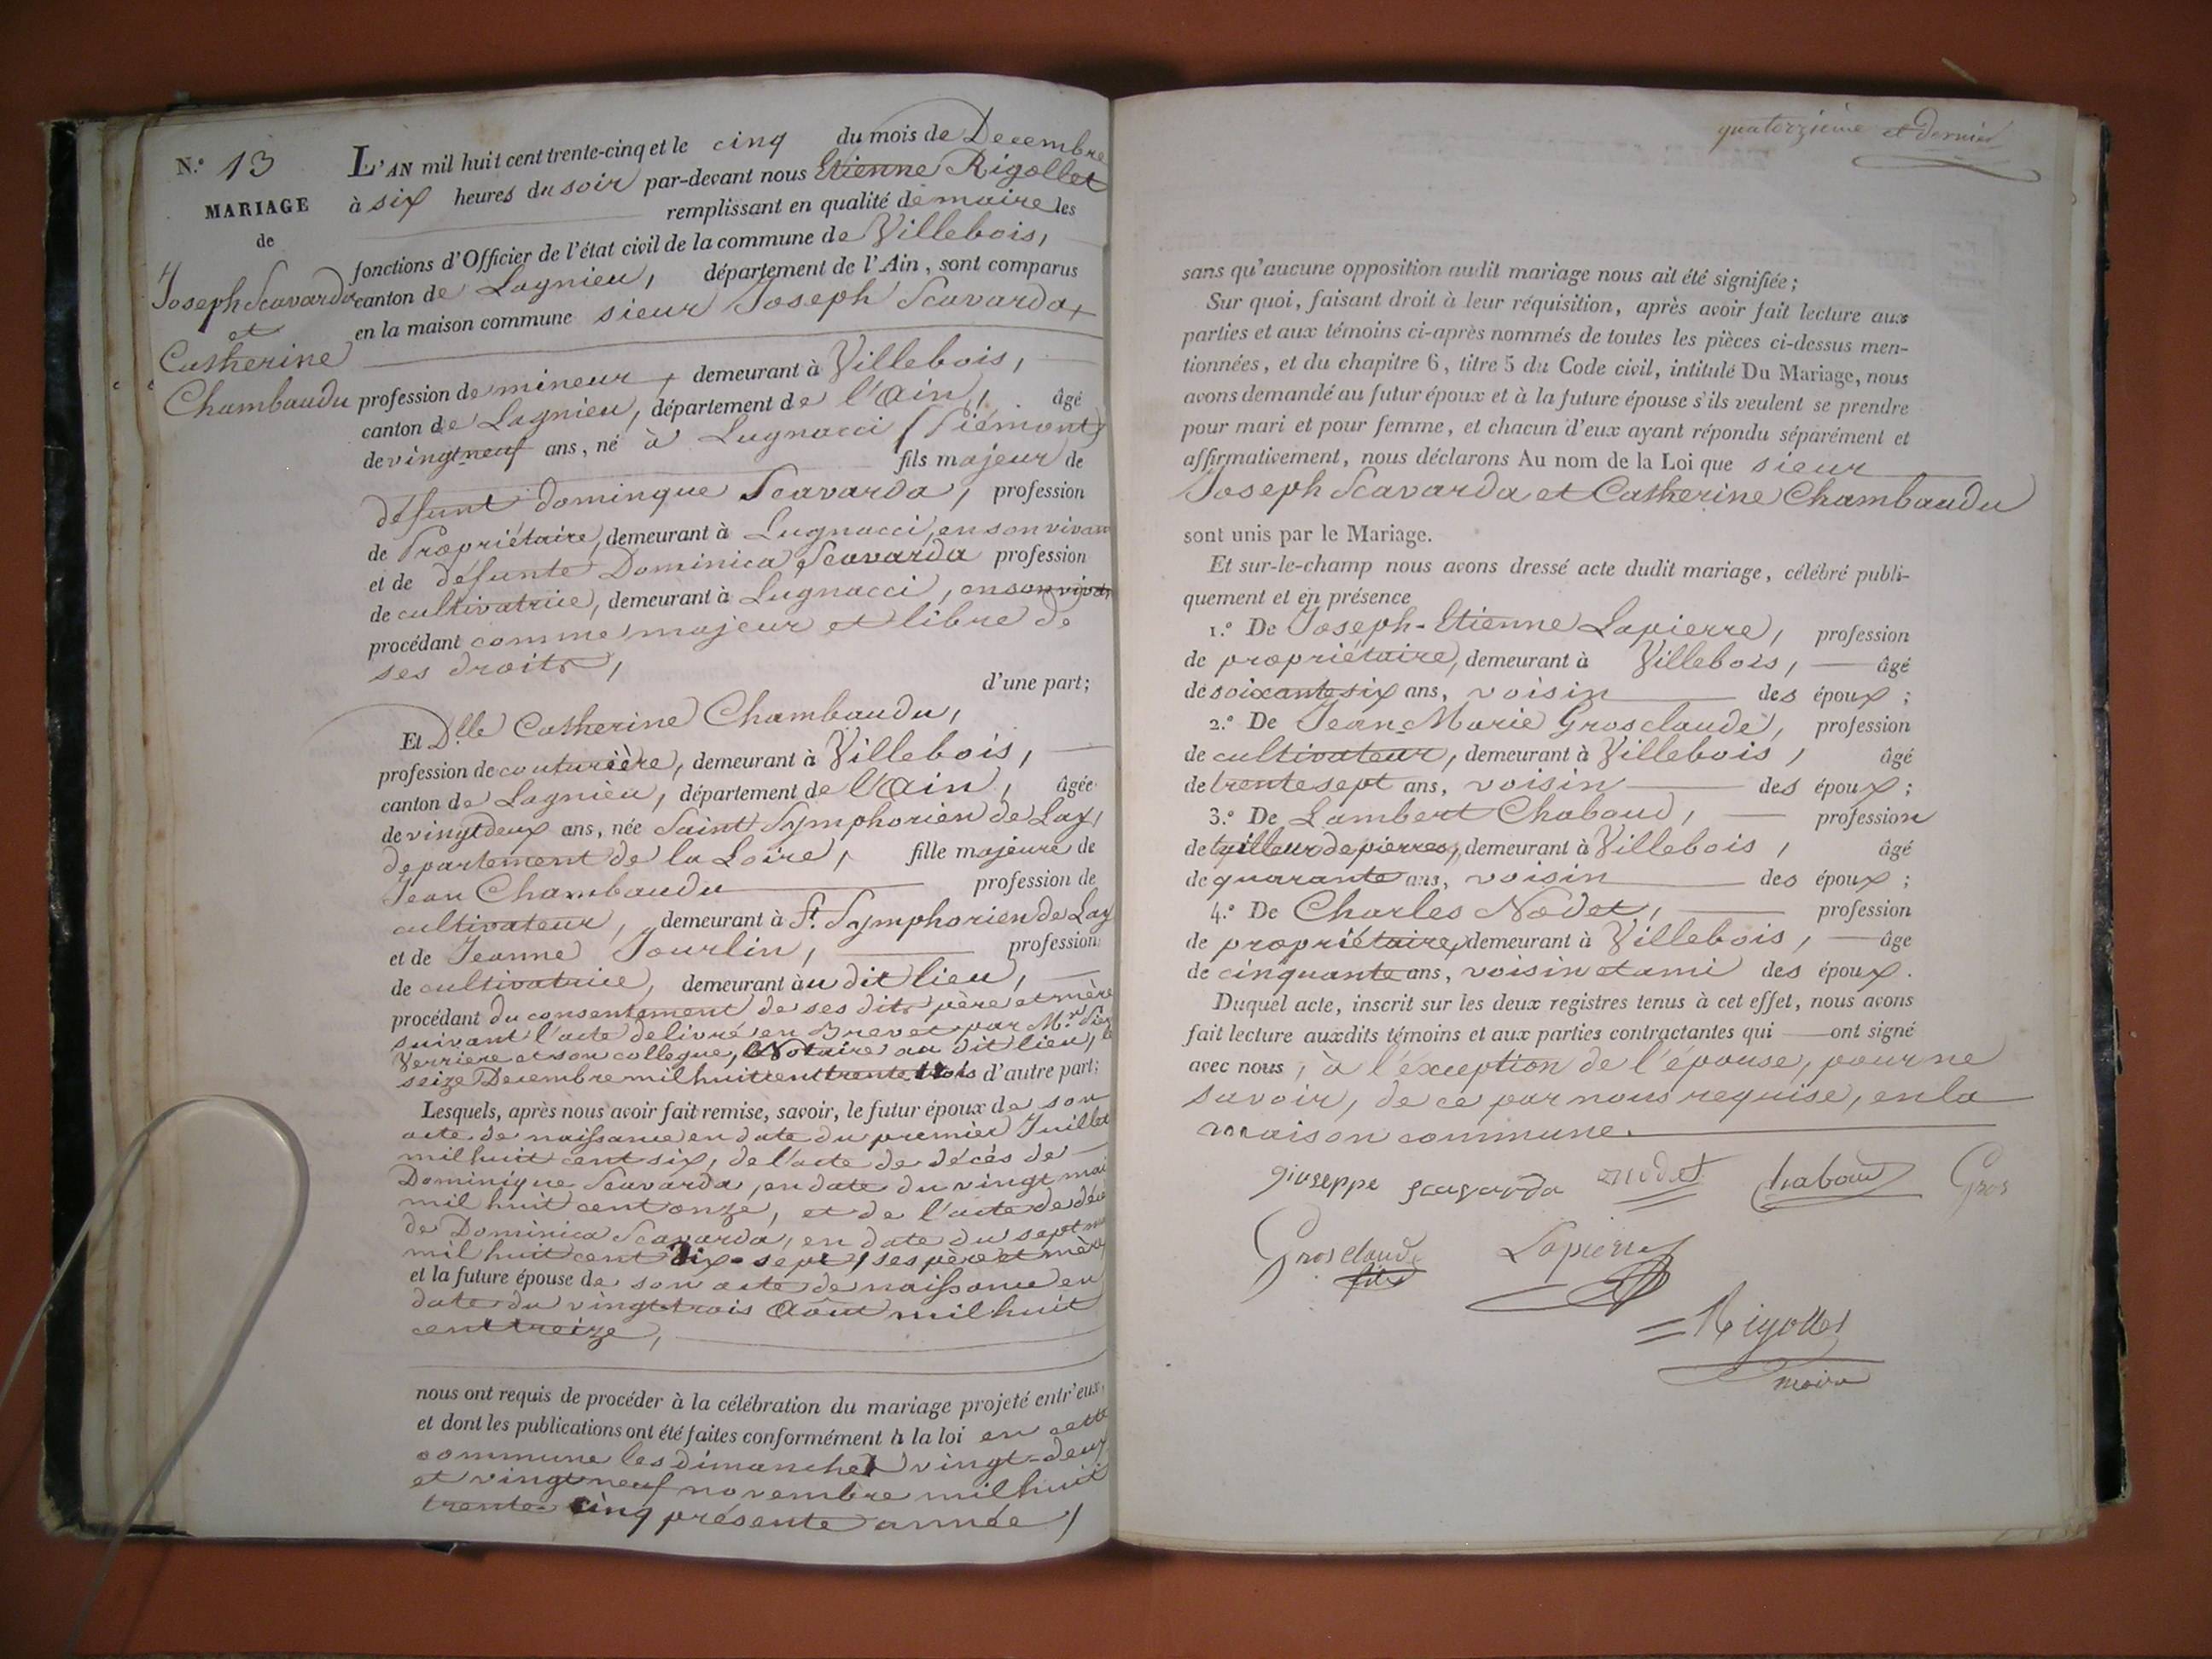 N.º 13
MARIAGE
de
Joseph Scavarda
et
Catherine
Chambaudu
L'AN mil huit cent trente-cinq et le cinq du mois de Decembre
à six heures du soir par-devant nous Etienne Rigollet
remplissant en qualité de maire les
fonctions d'Officier de l'état civil de la commune de Villebois,
canton de Lagnieu, département de l'Ain, sont comparus
en la maison commune sieur Joseph Scavarda
profession de mineur, demeurant à Villebois,
canton de Lagnieu, département de l'Ain, âgé
de vingt-neuf ans, né à Lugnacci (Piémont)
fils majeur de
défunt dominque Scavarda, profession
de Propriétaire, demeurant à Lugnacci, en son vivant
et de défunte Dominica Scavarda profession
de cultivatrice, demeurant à Lugnacci, en son vivant
procédant comme majeur et libre de
ses droits,
d'une part;
Et Dlle Catherine Chambaudu,
profession de couturière, demeurant à Villebois,
canton de Lagnieu, département de l'Ain, âgée
de vingt deux ans, née Saint Symphorien de Lay,
departement de la Loire, fille majeure de
Jean Chambaudu profession de
cultivateur, demeurant à St. Symphorien de Lay
et de Jeanne Jourlin, profession
de cultivatrice, demeurant au dit lieu,
procédant du consentement de ses dits père et mère
suivant l'acte delivré en Brevet par Mre
Verriere et son collegue, Notaire au dit lieu, le
seize Decembre mil huit cent trente trois d'autre part;
Lesquels, après nous avoir fait remise, savoir, le futur époux de son
acte de naissance en date du premier Juillet
mil huit cent six, de l'acte de décés de
Dominique Scavarda, en date du vingt mai
mil huit cent onze, et de l'acte de décé
de Dominica Scavarda, en date du sept
mil huit cent dix-sept, ses père et mère
et la future épouse de son acte de naissance en
date du vingt-trois Août mil huit
cent treize,
nous ont requis de procéder à la célébration du mariage projeté entr'eux,
et dont les publications ont été faites conformément à la loi en cette
commune les dimanches vingt-deux
et vingt neuf novembre mil huit
trente-cinq présente année,
quatorzième et dernier
sans qu'aucune opposition audit mariage nous ait été signifiée;
Sur quoi, faisant droit à leur réquisition, après avoir fait lecture aux
parties et aux témoins ci-après nommés de toutes les pièces ci-dessus men-
tionnées, et du chapitre 6, titre 5 du Code civil, intitulé Du Mariage, nous
avons demandé au futur époux et à la future épouse s'ils veulent se prendre
pour mari et pour femme, et chacun d'eux ayant répondu séparément et
affirmativement, nous déclarons Au nom de la Loi que sieur
Joseph Scavarda et Catherine Chambaudu
sont unis par le Mariage.
Et sur-le-champ nous avons dressé acte dudit mariage, célébré publi-
quement et en présence
1.º De Joseph-Etienne Lapierre, profession
de propriétaire, demeurant à Villebois, âgé
de soixante six ans, voisin des époux;
2.º De Jean-Marie Grosclaude, profession
de cultivateur, demeurant à Villebois, âgé
de trente sept ans, voisin des époux;
3.º De Lambert Chaboud, profession
de tailleur de pierres, demeurant à Villebois, âgé
de quarante ans, voisin des époux;
4.º De Charles Nodet, profession
de propriétaire, demeurant à Villebois, âge
de cinquante ans, voisin et ami des époux.
Duquel acte, inscrit sur les deux registres tenus à cet effet, nous avons
fait lecture auxdits témoins et aux parties contractantes qui ont signé
avec nous, à l'éxception de l'épouse, pour ne
savoir, de ce par nous requise, en la
maison commune.
giuseppe scavarda nodet Chaboud Gros
Grosclaude fils Lapierre
Rigollet
maire